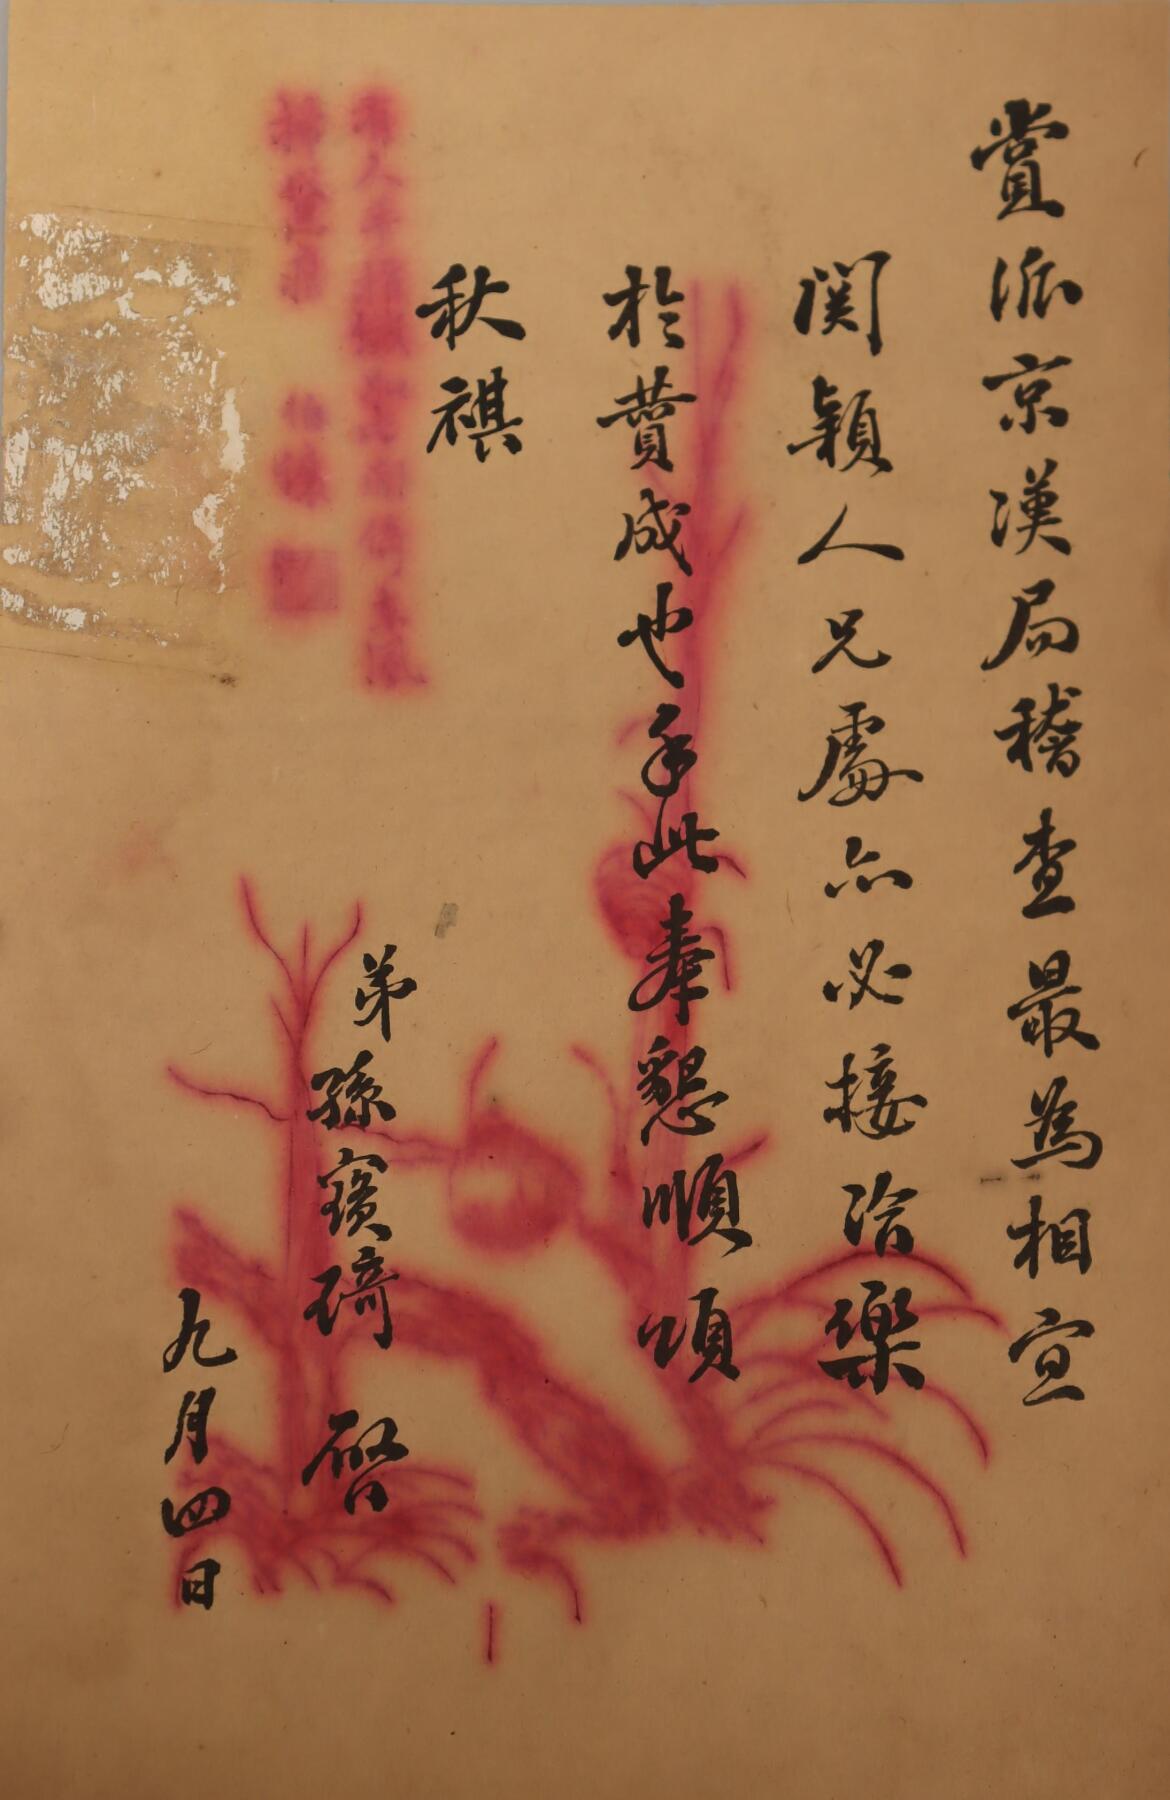 賞派京漢局稽查最為相宜
関穎人兄處亦必接洽樂
於贊成也手此奉懇順頌
秋祺
弟孫寶琦啓
九月四日